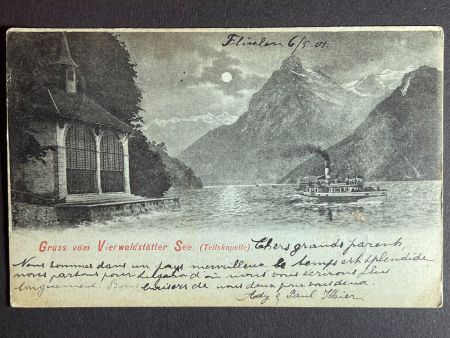 Flüelen 6/5 01.
Gruss vom Vierwaldstätter See (Tellskapelle)
Chers grands parents,
Nous sommes dans un pays merveilleux le temps est splendide
nous partons pour Lugano d'où nous vous écrirons plus
longuement. Bons baisers de nous deux pour vous deux.
Ady & Paul